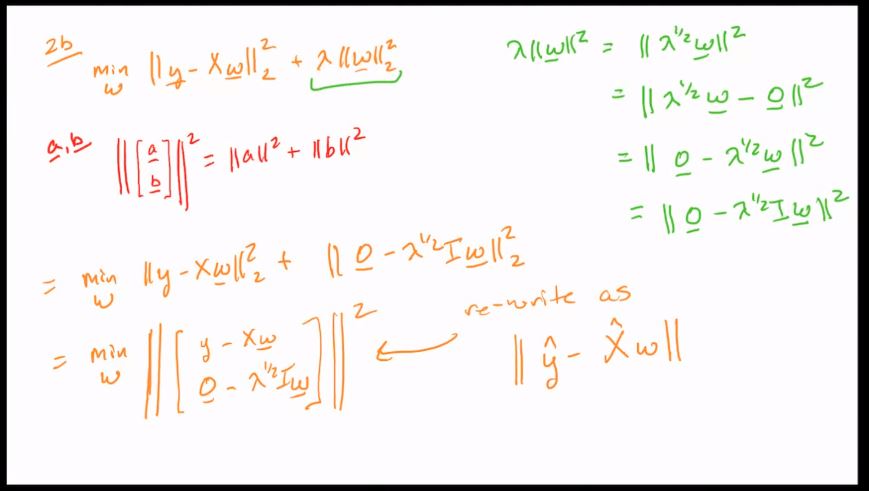 2b
min w ||y - Xw||₂² + λ||w||₂²
λ||w||² = ||λ^{1/2} w||²
= ||λ^{1/2} w - 0||²
= || 0 - λ^{1/2} w ||²
= || 0 - λ^{1/2} I w ||²
a, b ||[a b]||² = ||a||² + ||b||²
= min w ||y - Xw||₂² + || 0 - λ^{1/2} I w ||₂²
= min w ||[y - Xw
0 - λ^{1/2} I w]||²
re-write as
|| ŷ - X̂ w ||